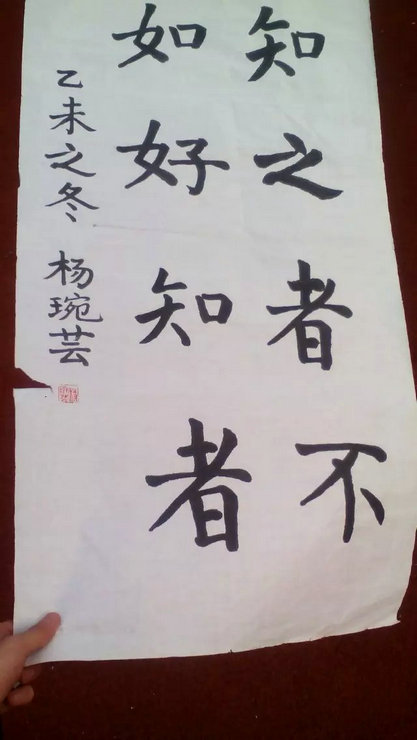 知之者不
如好知者
乙未之冬 杨琬芸